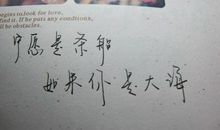 egins to look for love,
find it. If he puts any conditions,
ill be obstacles.
宁愿是条船
如果你是大海